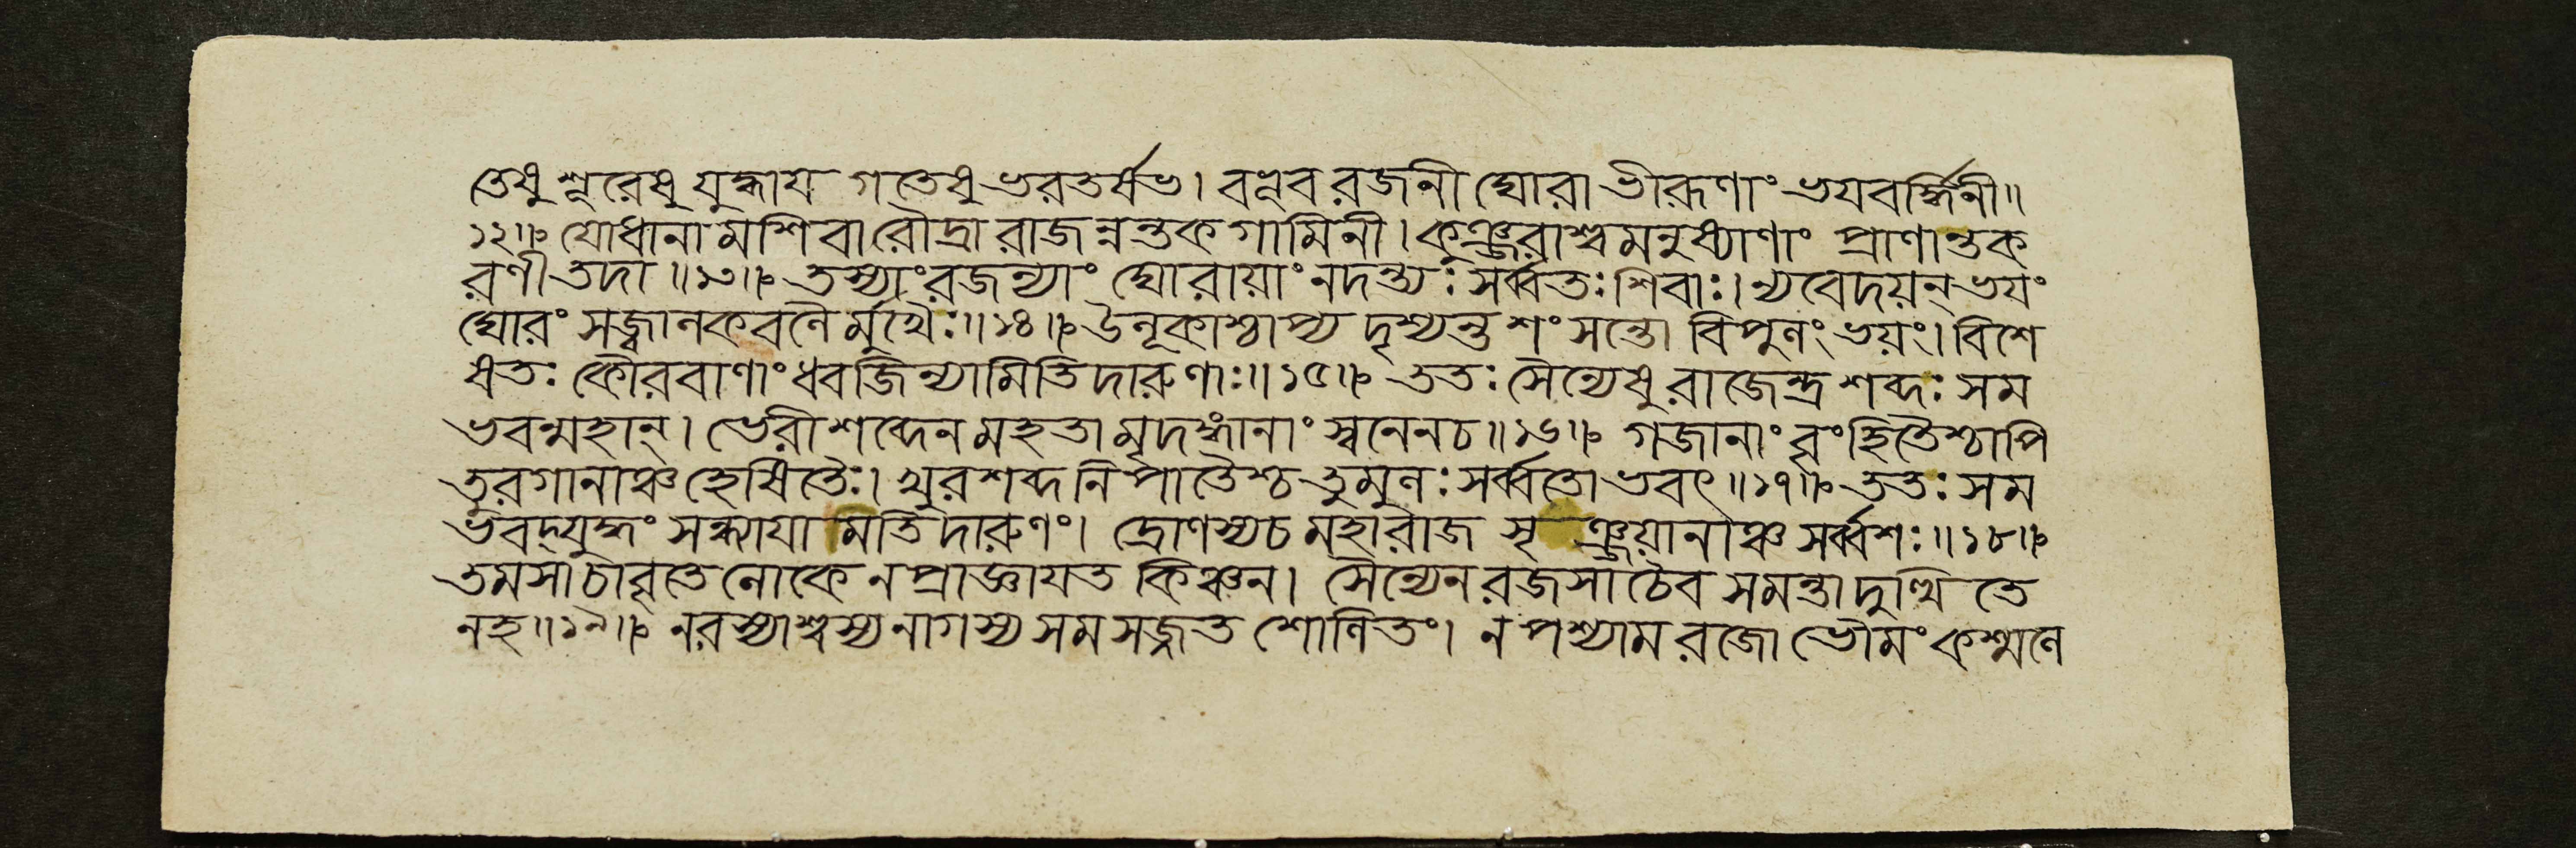 তেষু শূরেষু যুদ্ধায গতেষু ভরতর্ষভ। বভূব রজনী ঘোরা ভীরূণাং ভযবর্দ্ধিনী॥
১২॥ যোধানামশিবা রৌদ্রা রাজন্নন্তকগামিনী। কুঞ্জরাশ্বমনুষ্যাণাং প্রাণান্তক
রণী তদা॥১৩॥ তস্যাং রজন্যাং ঘোরায়াং নদন্ত্যঃ সর্ব্বতঃ শিবাঃ। ন্যবেদয়ন্ ভযং
ঘোরং সজ্বালকবলৈর্মুখৈঃ॥১৪॥ উলূকাশ্চাপ্যদৃশ্যন্ত শংসন্তো বিপুলং ভয়ং। বিশে
ষতঃ কৌরবাণাং ধ্বজিন্যামিতিদারুণাঃ॥১৫॥ ততঃ সৈন্যেষু রাজেন্দ্র শব্দঃ সম
ভবন্মহান্। ভেরীশব্দেন মহতা মৃদঙ্গানাং স্বনেন চ॥১৬॥ গজানাং বৃংহিতৈশ্চাপি
তুরগানাঞ্চ হেষিতৈঃ। খুরশব্দনিপাতৈশ্চ তুমুলঃ সর্ব্বতোভবৎ॥১৭॥ ততঃ সম
ভবদ্যুদ্ধং সন্ধ্যাযামতিদারুণং। দ্রোণস্য চ মহারাজ সৃঞ্জয়ানাঞ্চ সর্ব্বশঃ॥১৮॥
তমসা চাবৃতে লোকে ন প্রাজ্ঞাযত কিঞ্চন। সৈন্যেন রজসা চৈব সমন্তাদুত্থিতে
নহ॥১৯॥ নরস্যাশ্বস্য নাগস্য সমসজ্জত শোণিতং। ন পশ্যাম রজো ভৌমং কশ্মলে